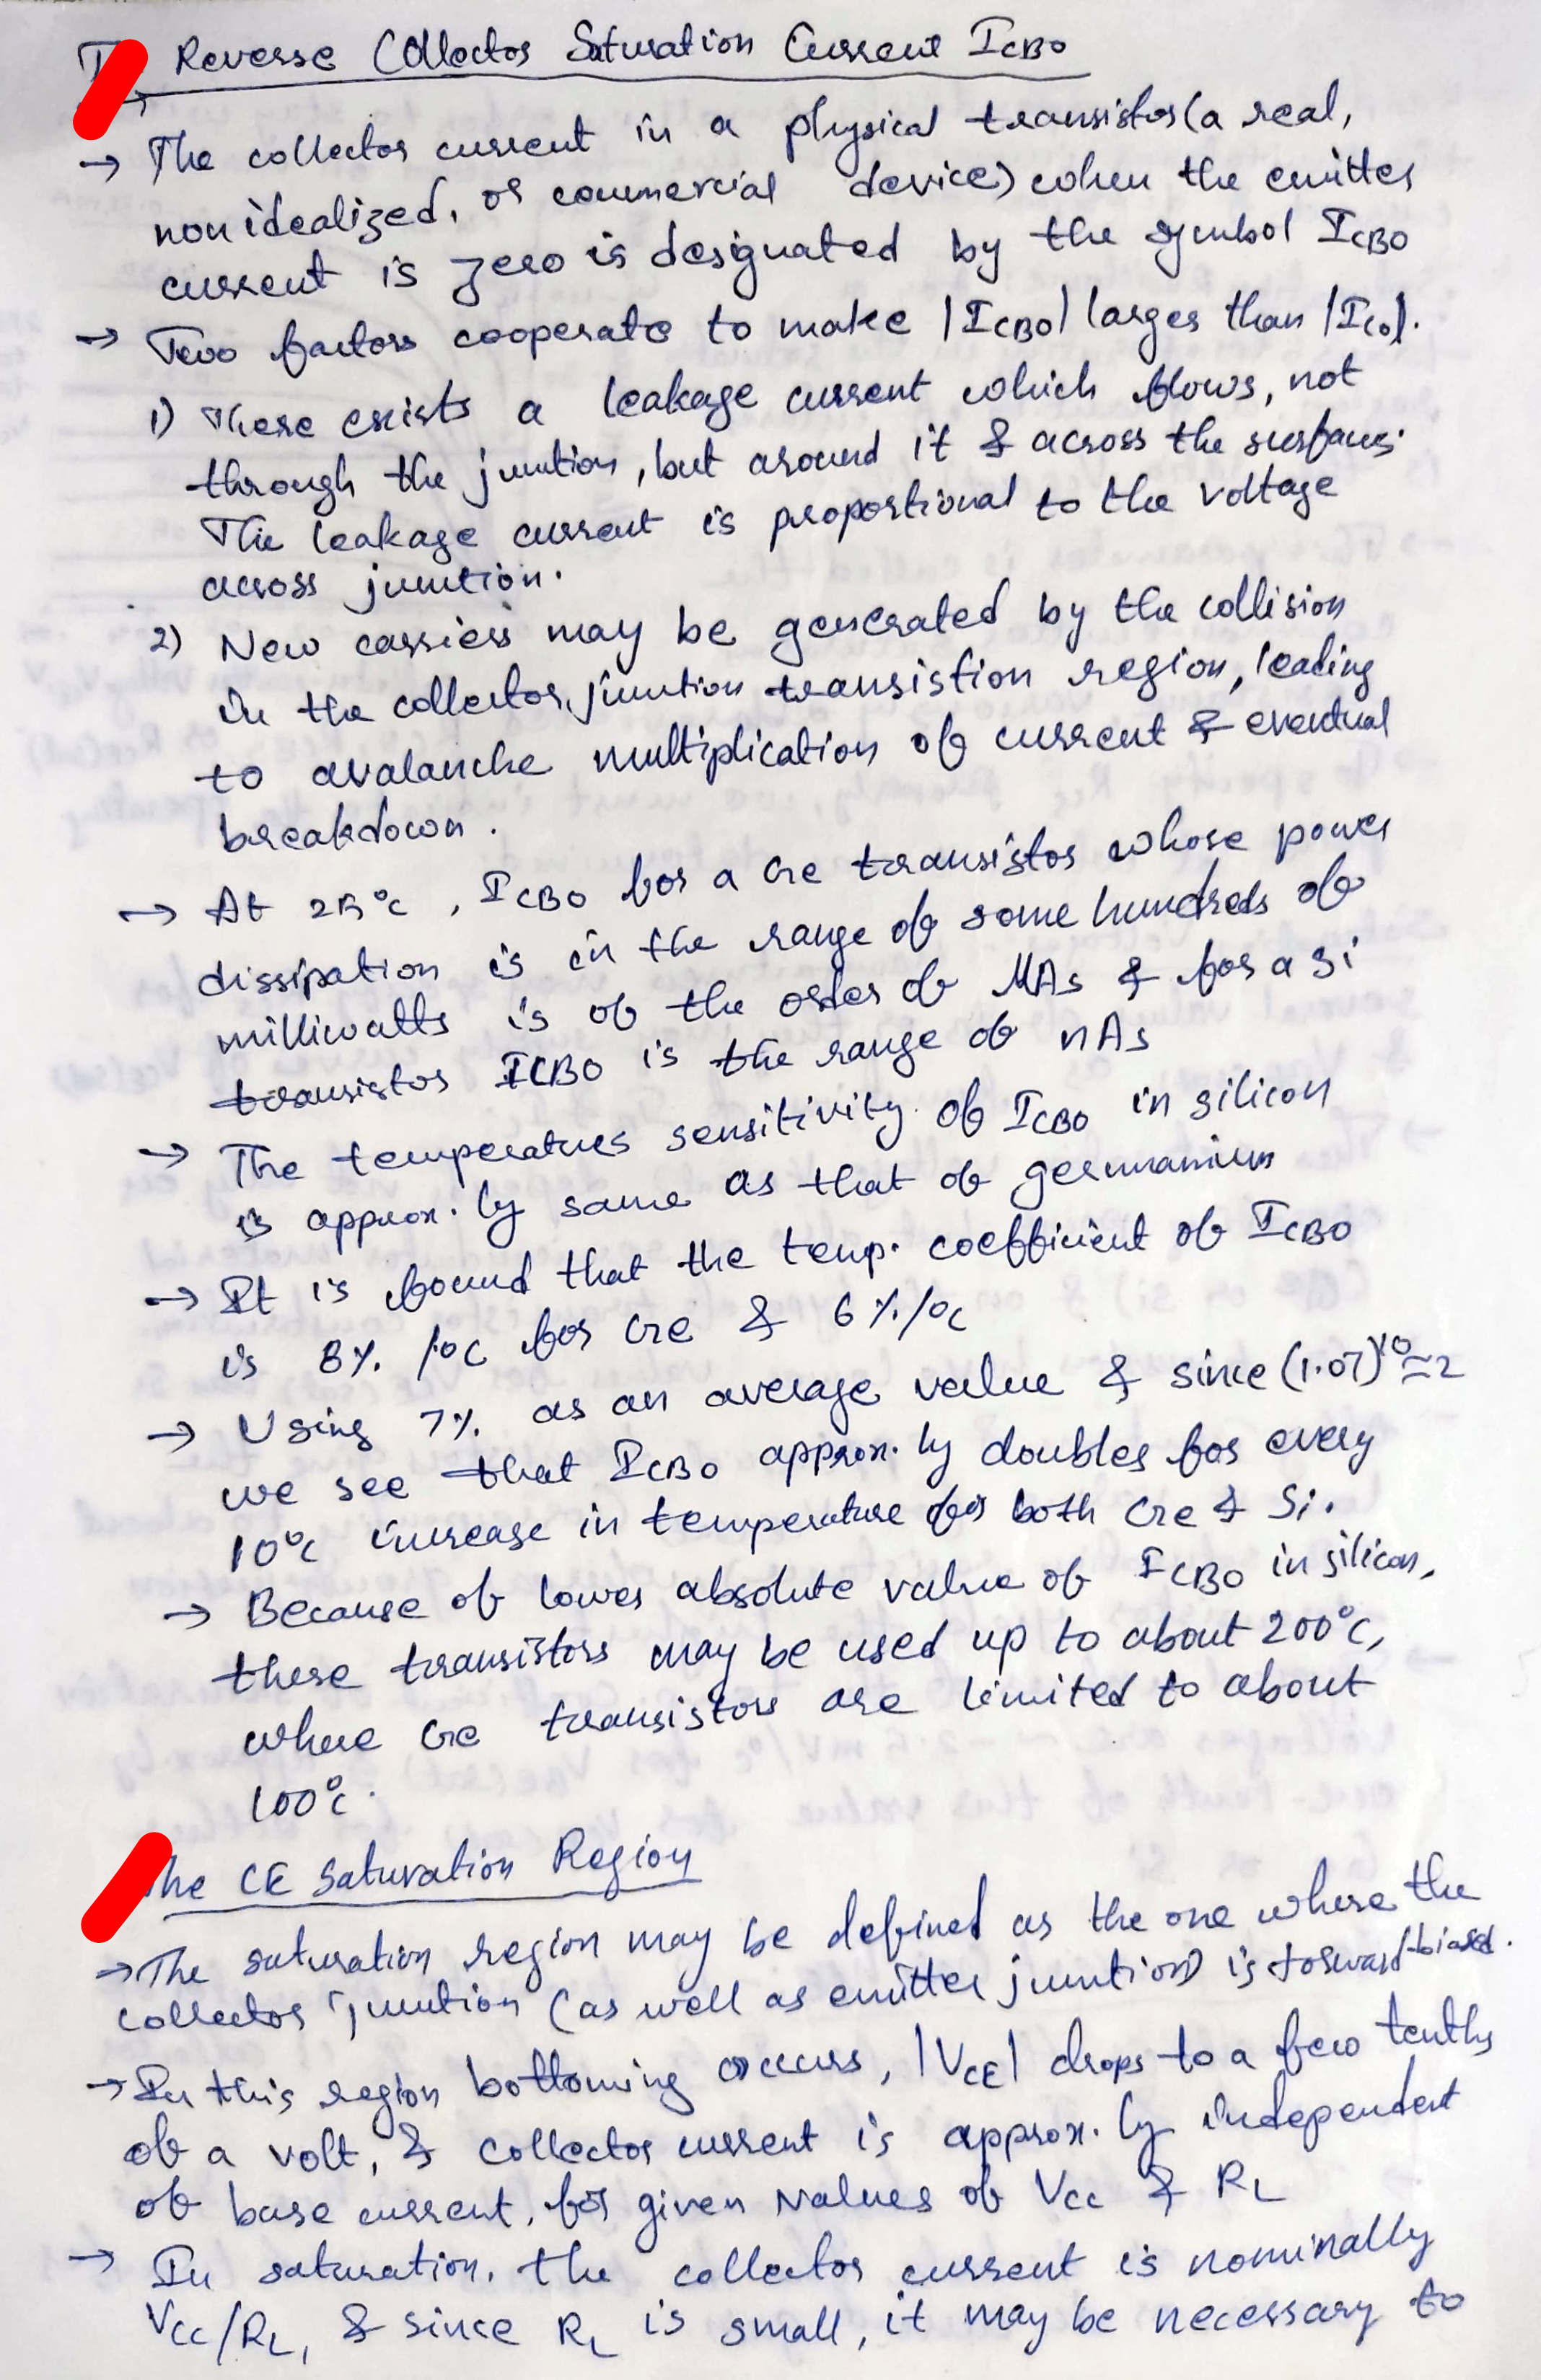 Reverse Collector Saturation Current ICBO
→ The collector current in a physical transistor (a real,
nonidealized, or commercial device) when the emitter
current is zero is designated by the symbol ICBO
→ Two factors cooperate to make |ICBO| larger than |ICO|.
1) There exists a leakage current which flows, not
through the junction, but around it & across the surfaces.
The leakage current is proportional to the voltage
across junction.
2) New carriers may be generated by the collision
in the collector junction transistion region, leading
to avalanche multiplication of current & eventual
breakdown.
→ At 25°C, ICBO for a Ge transistor whose power
dissipation is in the range of some hundreds of
milliwatts is of the order of μAs & for a Si
transistor ICBO is the range of nAs
→ The temperatures sensitivity of ICBO in silicon
is approx.ly same as that of germanium
→ It is found that the temp. coefficient of ICBO
is 8% /°C for Ge & 6%/°C
→ Using 7% as an average value & since (1.07)¹⁰≃2
we see that ICBO approx.ly doubles for every
10°C increase in temperature for both Ge & Si.
→ Because of lower absolute value of ICBO in silicon,
these transistors may be used up to about 200°C,
where Ge transistors are limited to about
100°C.
The CE Saturation Region
→ The saturation region may be defined as the one where the
collector junction (as well as emitter junction) is forward-biased.
→ In this region bottoming occurs, |VCE| drops to a few tenths
of a volt, & collector current is approx.ly independent
of base current, for given values of VCC & RL
→ In saturation, the collector current is nominally
VCC/RL, & since RL is small, it may be necessary to